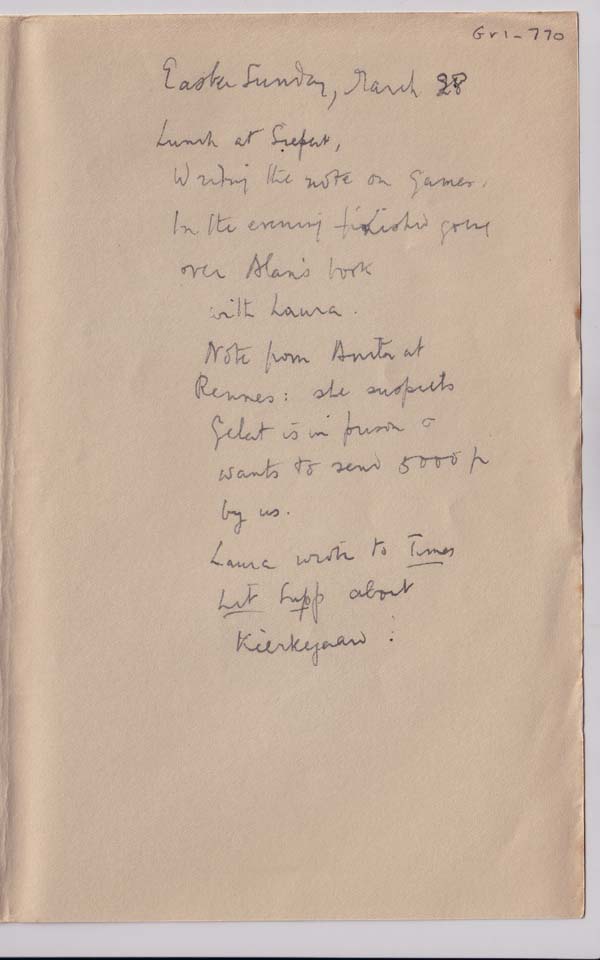 Gr1-770
Easter Sunday, March 28
Lunch at
Writing the note on Games.
In the evening finished going
over Alan's book
with Laura.
Note from Anita at
Rennes: she suspects
Gelat is in prison &
wants to send 5000 p
by us.
Laura wrote to Times
Lit Supp about
Kierkegaard :